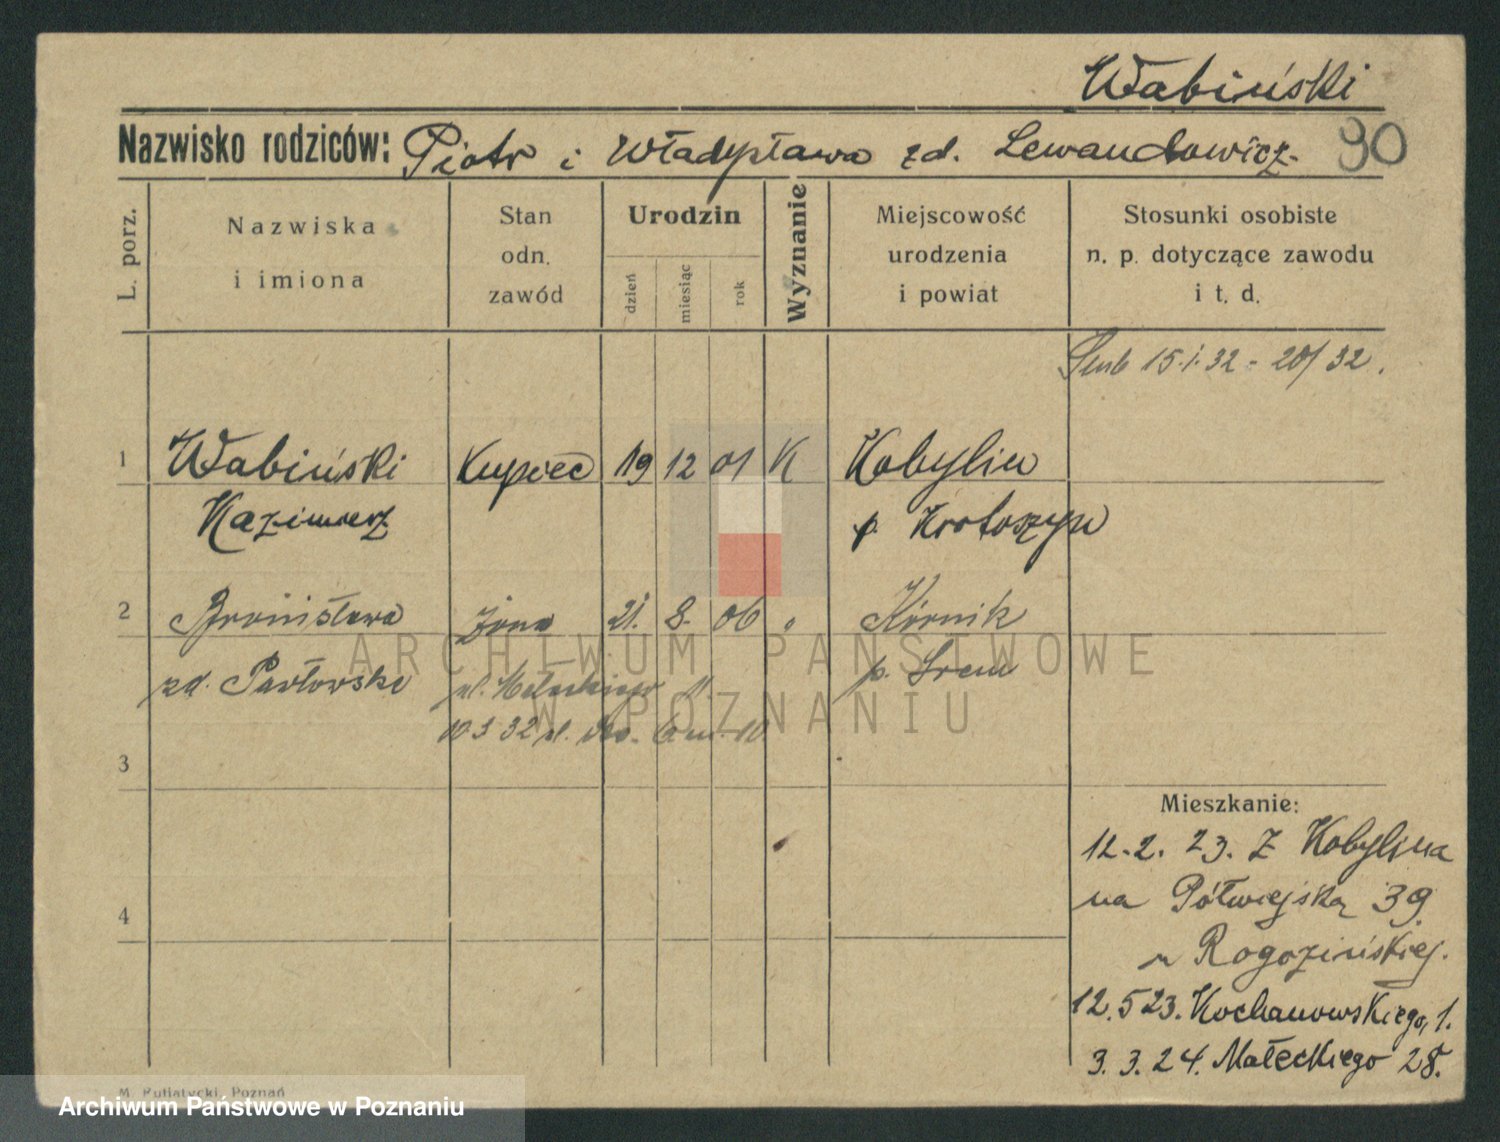 Wabiński
Nazwisko rodziców: Piotr i Władysława zd. Lewandowicz. 90
L. porz.
Nazwiska
i imiona
Stan
odn.
zawód
Urodzin
dzień
miesiąc
rok
Wyznanie
Miejscowość
urodzenia
i powiat
Stosunki osobiste
n. p. dotyczące zawodu
i t. d.
Ślub 15.1.32 - 20/32.
1 Wabiński Kupiec 19 12 01 K Kobylin
Kazimierz p. Krotoszyn
2 Bronisława żona 21. 8. 06 " Kórnik
zd. Pawłowska ul. Małeckiego 11. p. Śrem
10.3 32 ul. 6 m. 10
3
Mieszkanie:
12.2. 23. Z Kobylina
na Półwiejską 39
u Rogozińskiej.
12.5 23. Kochanowskiego, 1.
3. 3. 24. Małeckiego 28.
4
M. Putiatycki, Poznań
ARCHIWUM PAŃSTWOWE
W POZNANIU
Archiwum Państwowe w Poznaniu